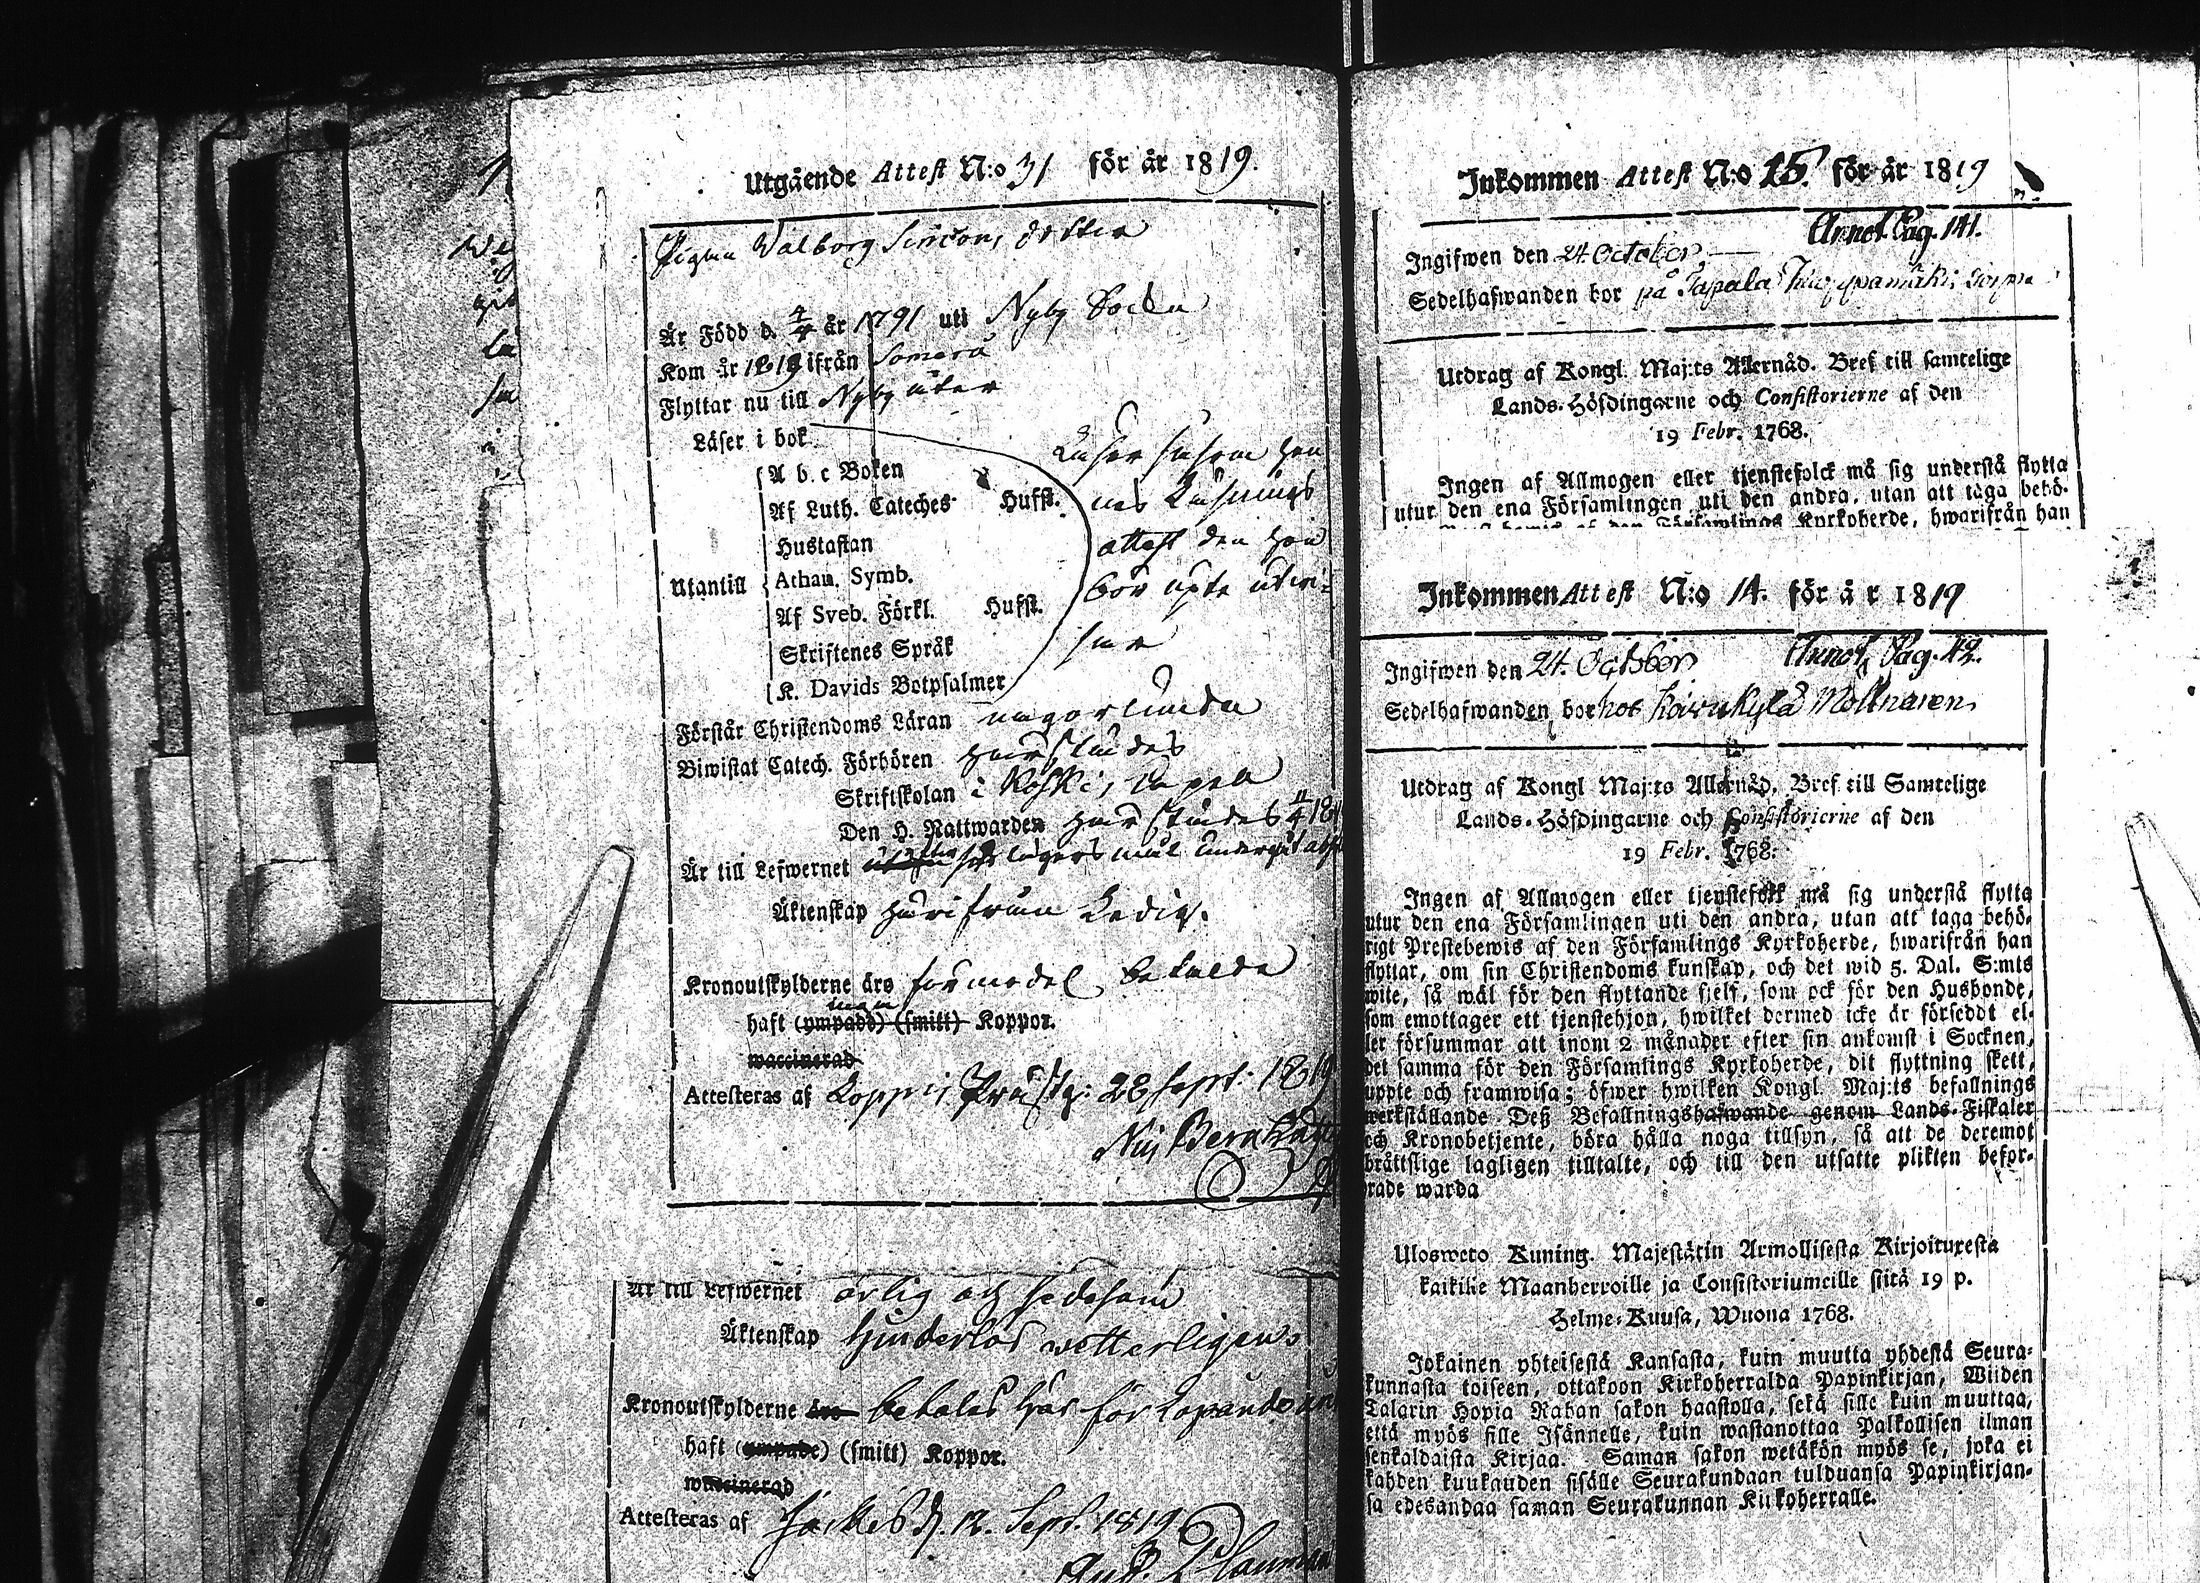 Utgående Attest N:o 31 för år 1819.
Pigan Walborg Simons dotter
Är Född d. 4/4 år 1791 uti Nyby Socken
Kom år 1818 ifrån Somero
Flyttar nu till Nyby åter
Läser i bok
A b. c Boken
Af Luth. Cateches Hufst.
Hustaflan
Utantill Athan. Symb.
Af Sveb. Förkl. Hufst.
Skriftenes Språk
K. Davids Botpsalmer
Läser såsom hen
nes Läsnings
attest den hon
bör upte utvi-
sar
Förstår Christendoms Läran någorlunda
Biwistat Catech. Förhören härstädes
Skriftskolan i Koskis Capell
Den H. Nattwarden härstädes
Är till Lefwernet lägersmål undergåt
Äktenskap härifrån Ledig.
Kronoutskylderne äro förmodel. betalda
man
haft (ympadd) (smitt) Koppor.
waccinerad
Attesteras af Koppis Prästg: 28 Sept: 1819
Är till Lefwernet ärlig och sedesam
Äktenskap hinderlös wetterligen
Kronoutskylderne äro betalas här för Löpande
haft (ympade) (smitt) Koppor.
waccinerad
Attesteras af Jockis d. 12. Sept. 1819
Inkommen Attest N:o 15. för år 1819
Annot. Pag. 141.
Ingifwen den 24 October.
Sedelhafwanden bor på Tapala
Utdrag af Kongl. Maj:ts Allernåd. Bref till samtelige
Lands-Höfdingarne och Consistorierne af den
19 Febr. 1768.
Ingen af Allmogen eller tjenstefolck må sig understå flytta
utur den ena Församlingen uti den andra, utan att taga behö-
Församlings Kyrkoherde, hwarifrån han
Inkommen Attest N:o 14. för år 1819
Annot. Pag. 42.
Ingifwen den 24. October
Sedelhafwanden bor hos Koivukylä Mollnaren
Utdrag af Kongl Maj:ts Allernåd. Bref till Samtelige
Lands-Höfdingarne och Consistorierne af den
19 Febr. 1768:
Ingen af Allmogen eller tjenstefolk må sig understå flytta
utur den ena Församlingen uti den andra, utan att taga behö-
rigt Prestebewis af den Församlings Kyrkoherde, hwarifrån han
flyttar, om sin Christendoms kunskap, och det wid 5. Dal. S:mts
wite, så wäl för den flyttande sjelf, som ock för den Husbonde,
som emottager ett tjenstehjon, hwilket dermed icke är försedt el-
ler försummar att inom 2 månader efter sin ankomst i Socknen,
det samma för den Församlings Kyrkoherde, dit flyttning skett,
uppte och framwisa; öfwer hwilken Kongl. Maj:ts befallnings
werkställande Deß Befallningshafwande genom Lands-Fiskaler
och Kronobetjente, böra hålla noga tillsyn, så att de deremot
bråttslige lagligen tilltalte, och till den utsatte plikten befor-
rade warda
Ulosweto Kuning. Majestätin Armollisesta Kirjoituxesta
kaikille Maanherroille ja Consistoriumeille siitä 19 p.
Helme-Kuusa, Wuona 1768.
Jokainen yhteisestä Kansasta, kuin muutta yhdestä Seura-
kunnasta toiseen, ottakoon Kirkoherralda Papinkirjan, Wiiden
Talarin Hopia Rahan sakon haastolla, sekä sille kuin muuttaa,
että myös sille Isännelle, kuin wastanottaa Palkollisen ilman
senkaldaista Kirjaa. Saman sakon wetäkön myös se, joka ei
kahden kuukauden sisälle Seurakundaan tulduansa Papinkirjan-
sa edesandaa saman Seurakunnan Kirkoherralle.